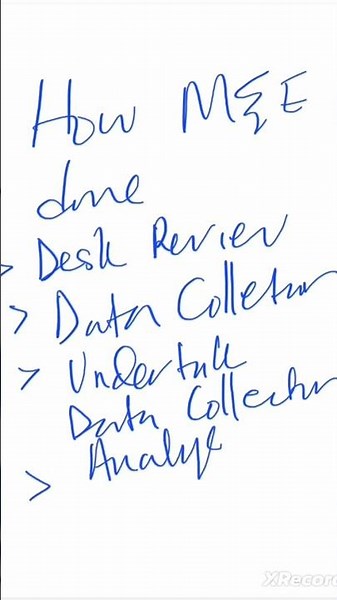 How M&E
done
> Desk Review
> Data Collection
> Undertake
Data Collection
Analyse
>
XRecord